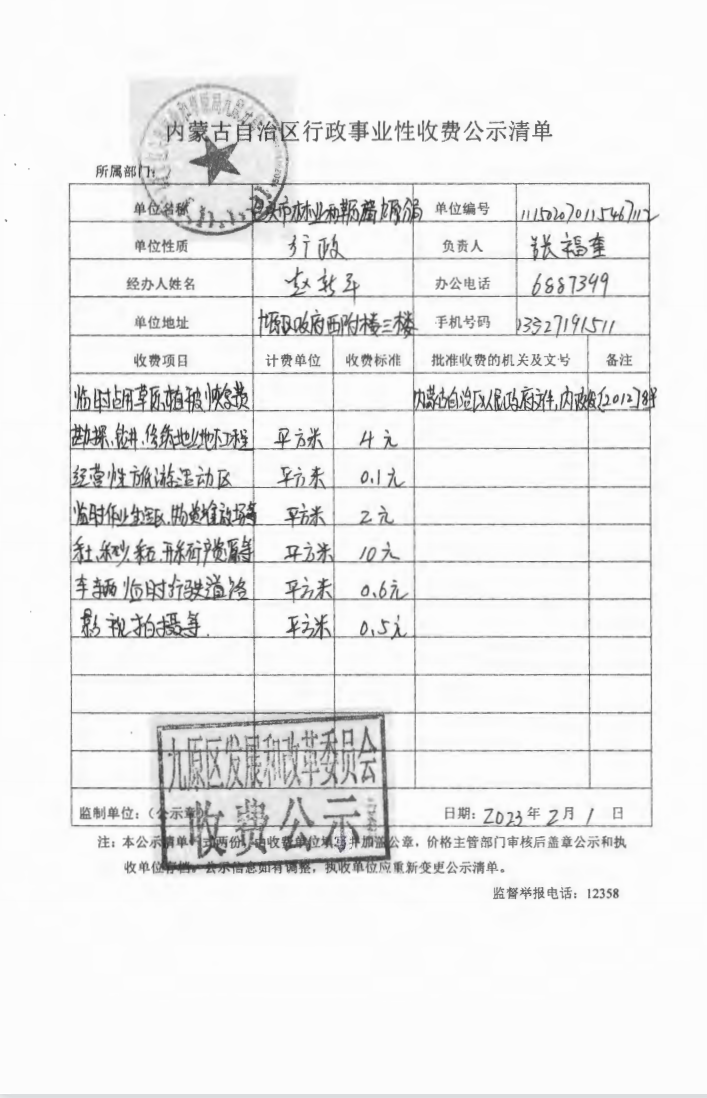 内蒙古自治区行政事业性收费公示清单
所属部门：
单位名称 包头市林业和草原局九原分局 单位编号
单位性质 行政 负责人 张福奎
经办人姓名 赵新平 办公电话 6887399
单位地址 九原区政府西附楼三楼 手机号码 13327191511
收费项目 计费单位 收费标准 批准收费的机关及文号 备注
临时占用草原植被恢复费 内蒙古自治区人民政府文件,内政发[2012]
勘探、钻井、修筑地上地下工程 平方米 4元
经营性旅游活动区 平方米 0.1元
临时作业生活区、物资堆放场等 平方米 2元
采土、采砂、采石、开采矿产资源等 平方米 10元
车辆临时行驶道路 平方米 0.6元
影视拍摄等. 平方米 0.5元
九原区发展和改革委员会
收费公示
监制单位：（公示章 日期：2023年2月1日
注：本公示清单一式两份，由收费单位填写并加盖公章，价格主管部门审核后盖章公示和执
收单位存档。公示信息如有调整，执收单位应重新变更公示清单。
监督举报电话：12358